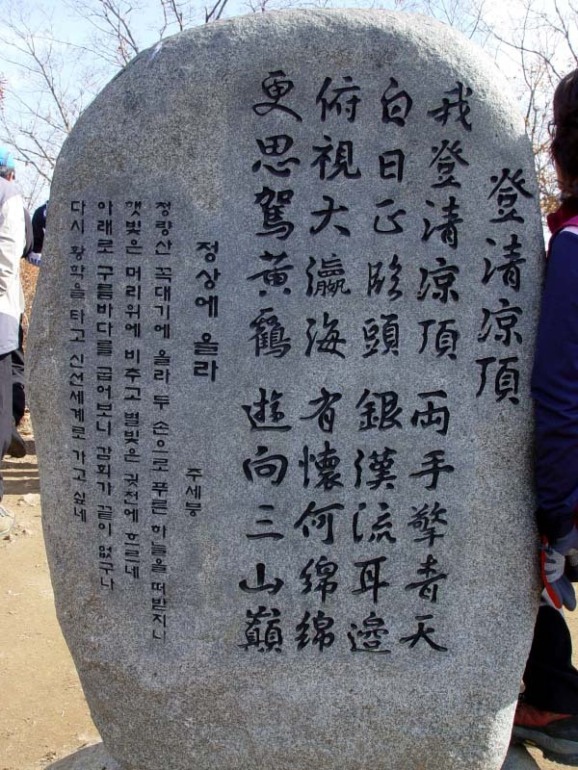 登清凉頂
我登清凉頂 両手擎青天
白日正臨頭 銀漢流耳邊
俯視大瀛海 有懷何綿綿
更思駕黃鶴 遊向三山巓
정상에 올라
주세붕
청량산 꼭대기에 올라 두 손으로 푸른 하늘을 떠받치니
햇빛은 머리위에 비추고 별빛은 귓전에 흐르네
아래로 구름바다를 굽어보니 감회가 끝이 없구나
다시 황학을 타고 신선세계로 가고 싶네